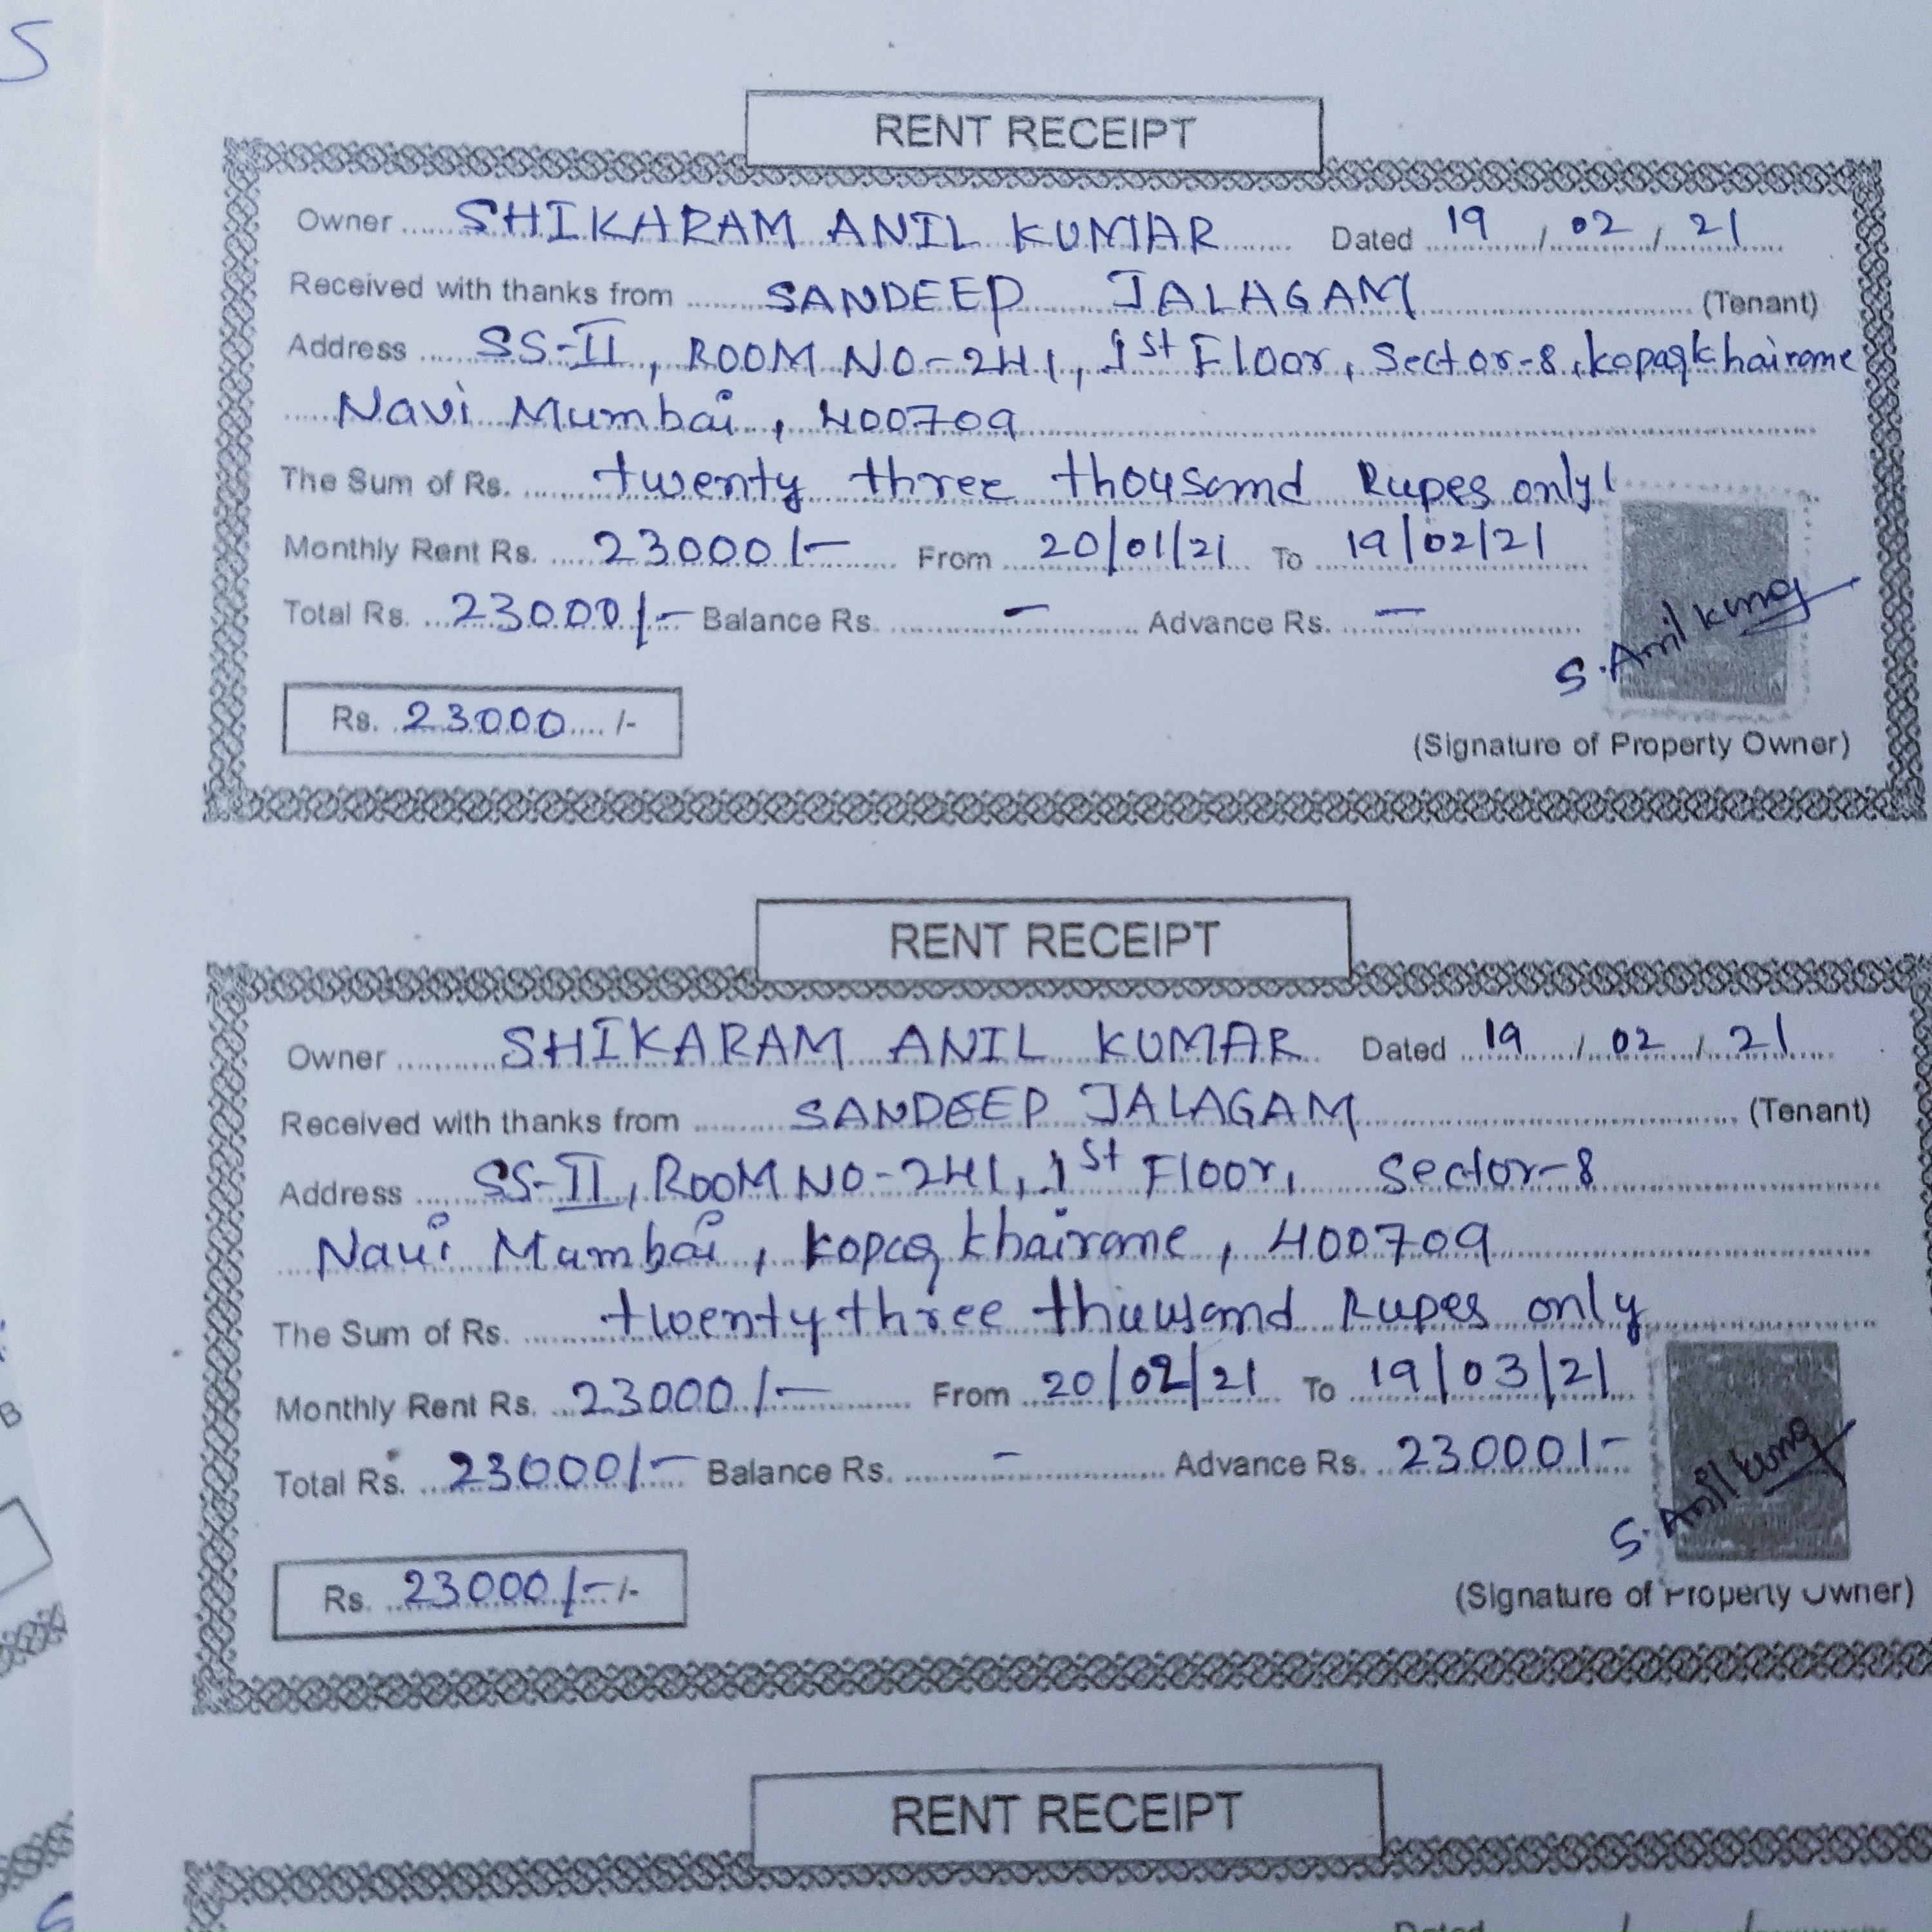 S
RENT RECEIPT
Owner SHIKARAM ANIL KUMAR Dated 19 / 02 / 21
Received with thanks from SANDEEP JALAGAM (Tenant)
Address SS-II, ROOM NO-241, 1st Floor, Sector-8, kopaqkhairame
Navi Mumbai, 400709
The Sum of Rs. twenty three thousand Rupes only
Monthly Rent Rs. 23000/- From 20/01/21 To 19/02/21
Total Rs. 23000/- Balance Rs. - Advance Rs. -
S. Anil kumg
Rs. 23000 /-
(Signature of Property Owner)
RENT RECEIPT
Owner SHIKARAM ANIL KUMAR Dated 19 / 02 / 21
Received with thanks from SANDEEP JALAGAM (Tenant)
Address SS-II, ROOM NO-241, 1st Floor, Sector-8
Navi Mumbai, kopaq khairame, 400709
The Sum of Rs. twenty three thuusand Rupes only
Monthly Rent Rs. 23000/- From 20/02/21 To 19/03/21
Total Rs. 23000/- Balance Rs. - Advance Rs. 23000/-
S. Anil kumg
Rs. 23000/- /-
(Signature of Property Owner)
RENT RECEIPT
Dated